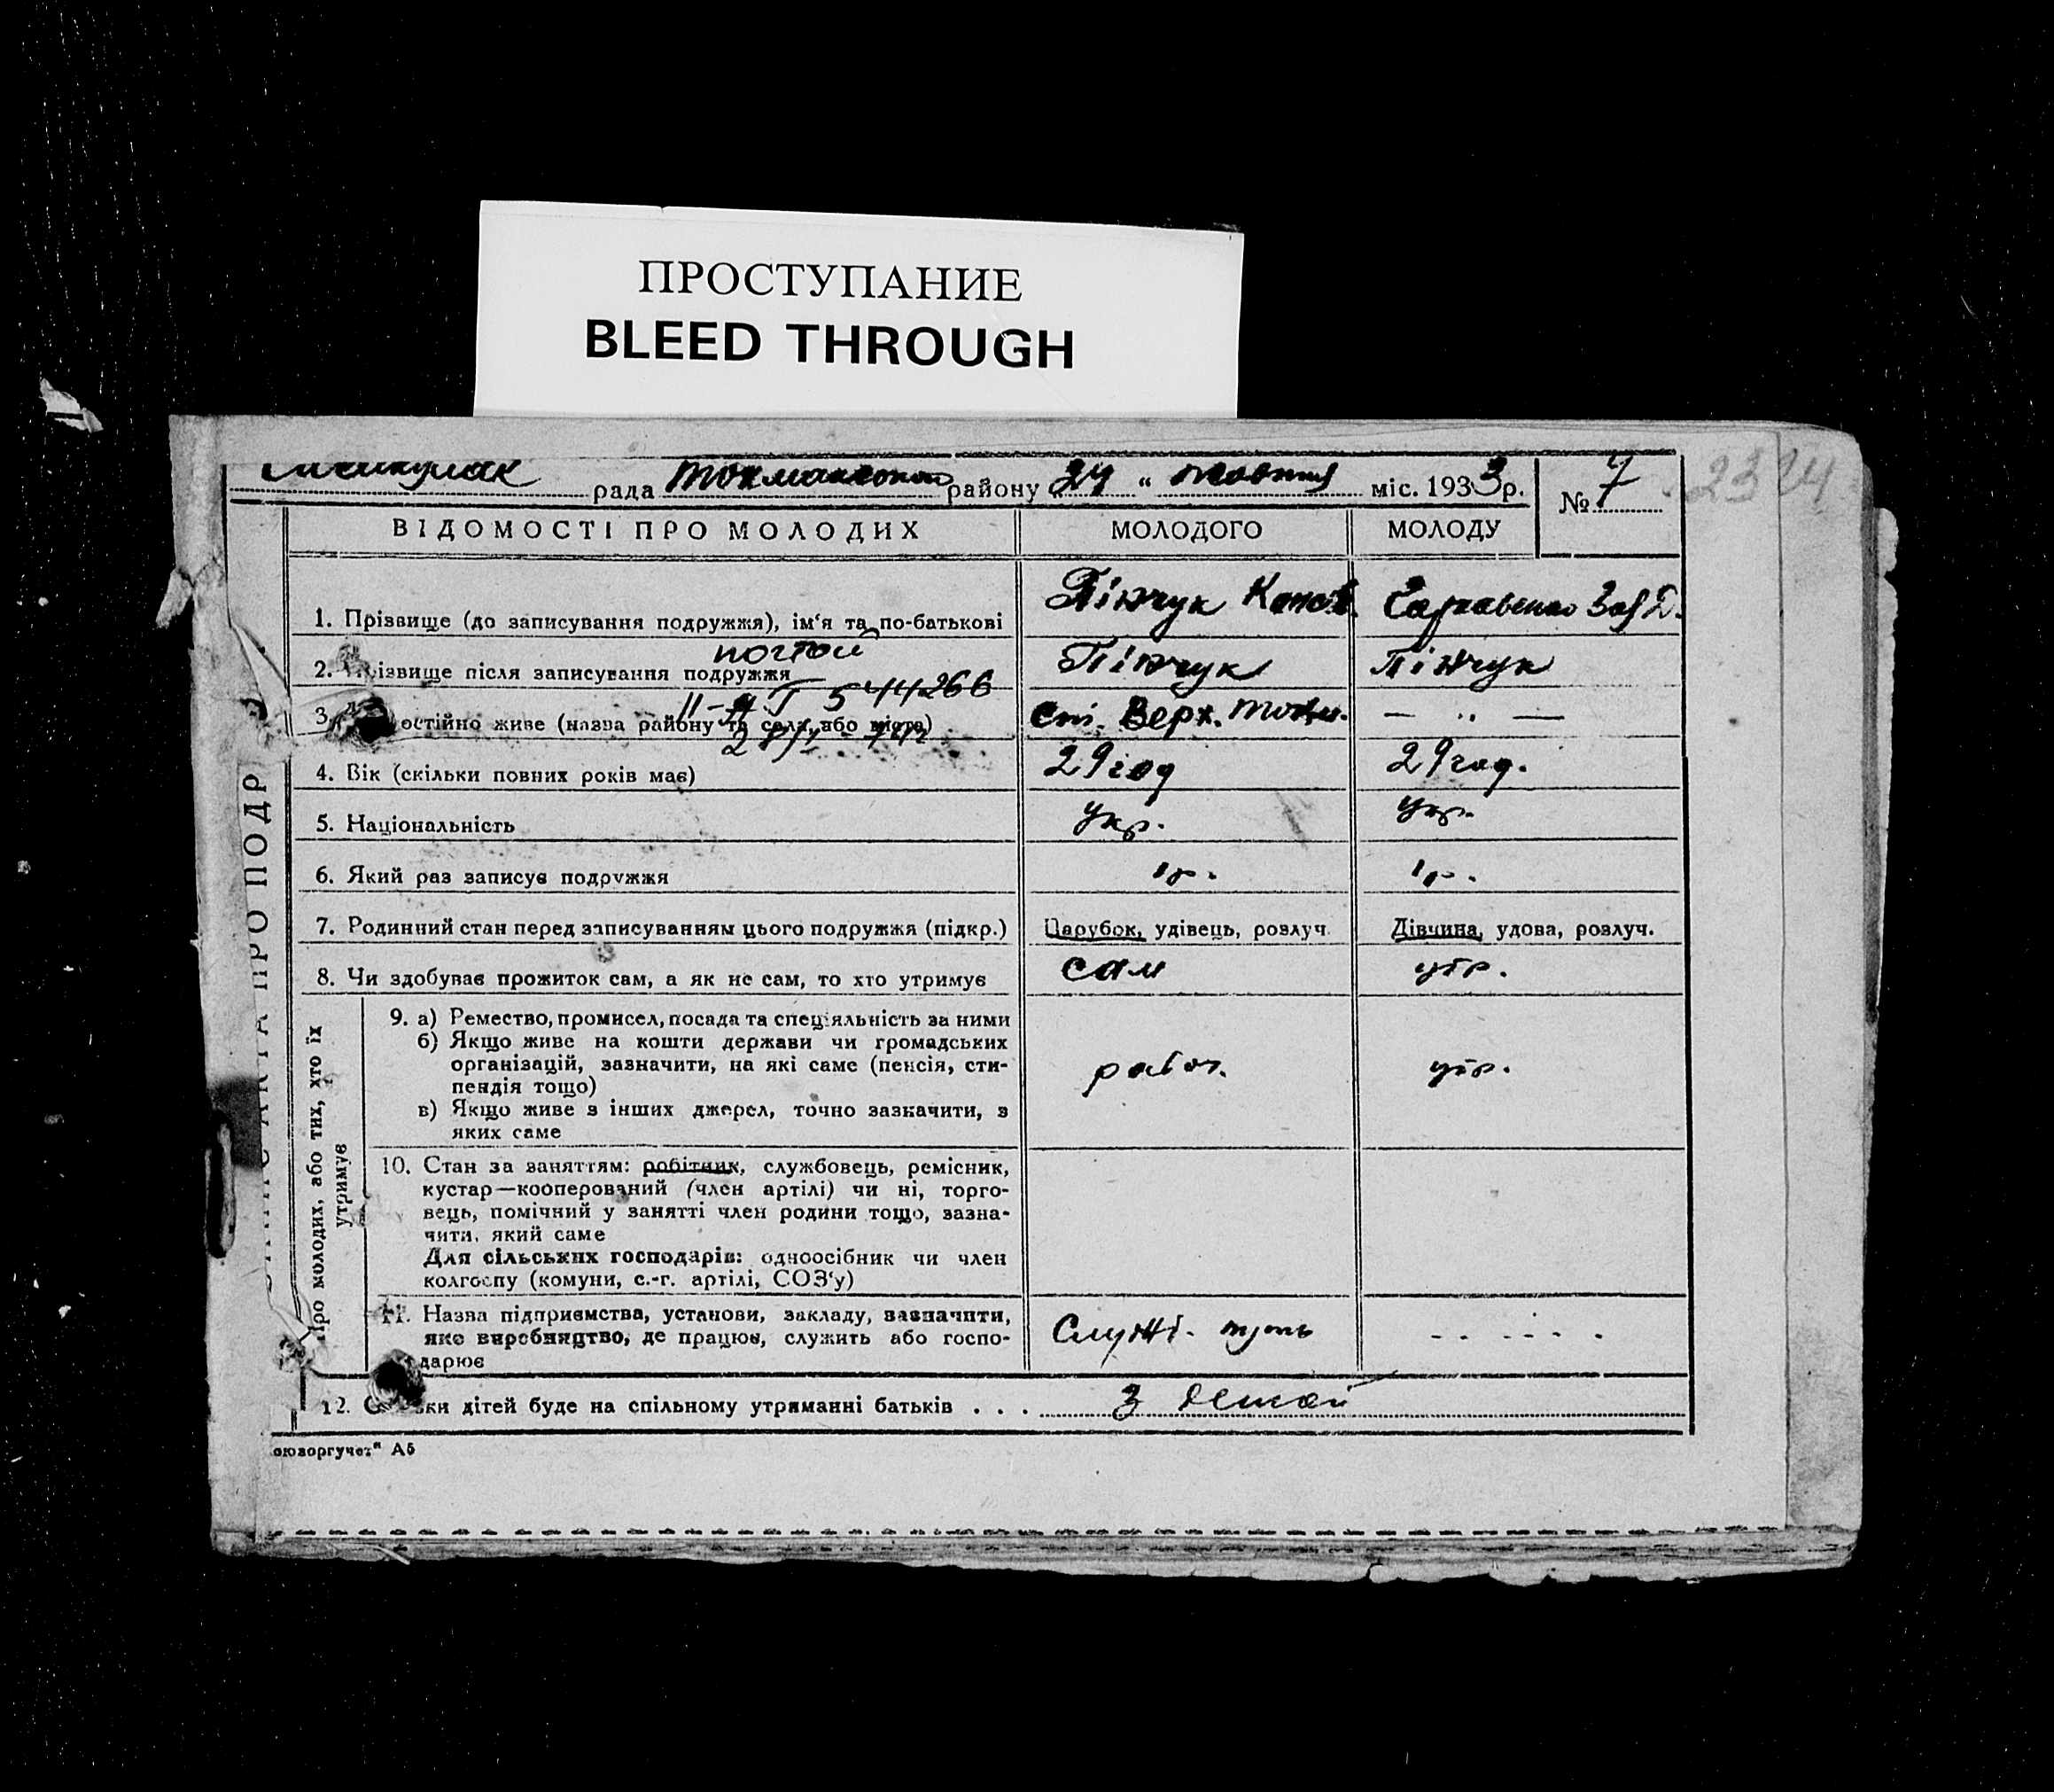 ПРОСТУПАНИЕ
BLEED THROUGH
рада Токмакского району 24 " жовтня міс. 1933 р. № 7
2324
ВІДОМОСТІ ПРО МОЛОДИХ МОЛОДОГО МОЛОДУ
1. Прізвище (до записування подружжя), ім'я та по-батькові Пінчук
2. Прізвище після записування подружжя Пінчук Пінчук
544266
3. постійно живе (назва району та села або міста) ст. Верх. Токм. — „ —
4. Вік (скільки повних років має) 29 год 29 год.
5. Національність укр. укр.
6. Який раз записує подружжя 1 р. 1 р.
7. Родинний стан перед записуванням цього подружжя (підкр.) Парубок, удівець, розлуч. Дівчина, удова, розлуч.
8. Чи здобуває прожиток сам, а як не сам, то хто утримує сам утр.
Про молодих, або тих, хто їх утримує
9. а) Ремество, промисел, посада та спеціяльність за ними
б) Якщо живе на кошти держави чи громадських
організацій, зазначити, на які саме (пенсія, сти-
пендія тощо) рабоч. утр.
в) Якщо живе з інших джерел, точно зазначити, з
яких саме
10. Стан за заняттям: робітник, службовець, ремісник,
кустар—кооперований (член артілі) чи ні, торго-
вець, помічний у занятті член родини тощо, зазна-
чити, який саме
Для сільських господарів: одноосібник чи член
колгоспу (комуни, с.-г. артілі, СОЗ'у)
11. Назва підприємства, установи, закладу, зазначити,
яке виробництво, де працює, служить або госпо-
дарює Служб. путь
12. Скільки дітей буде на спільному утриманні батьків . . . 3 детей
оюзоргучет" А5